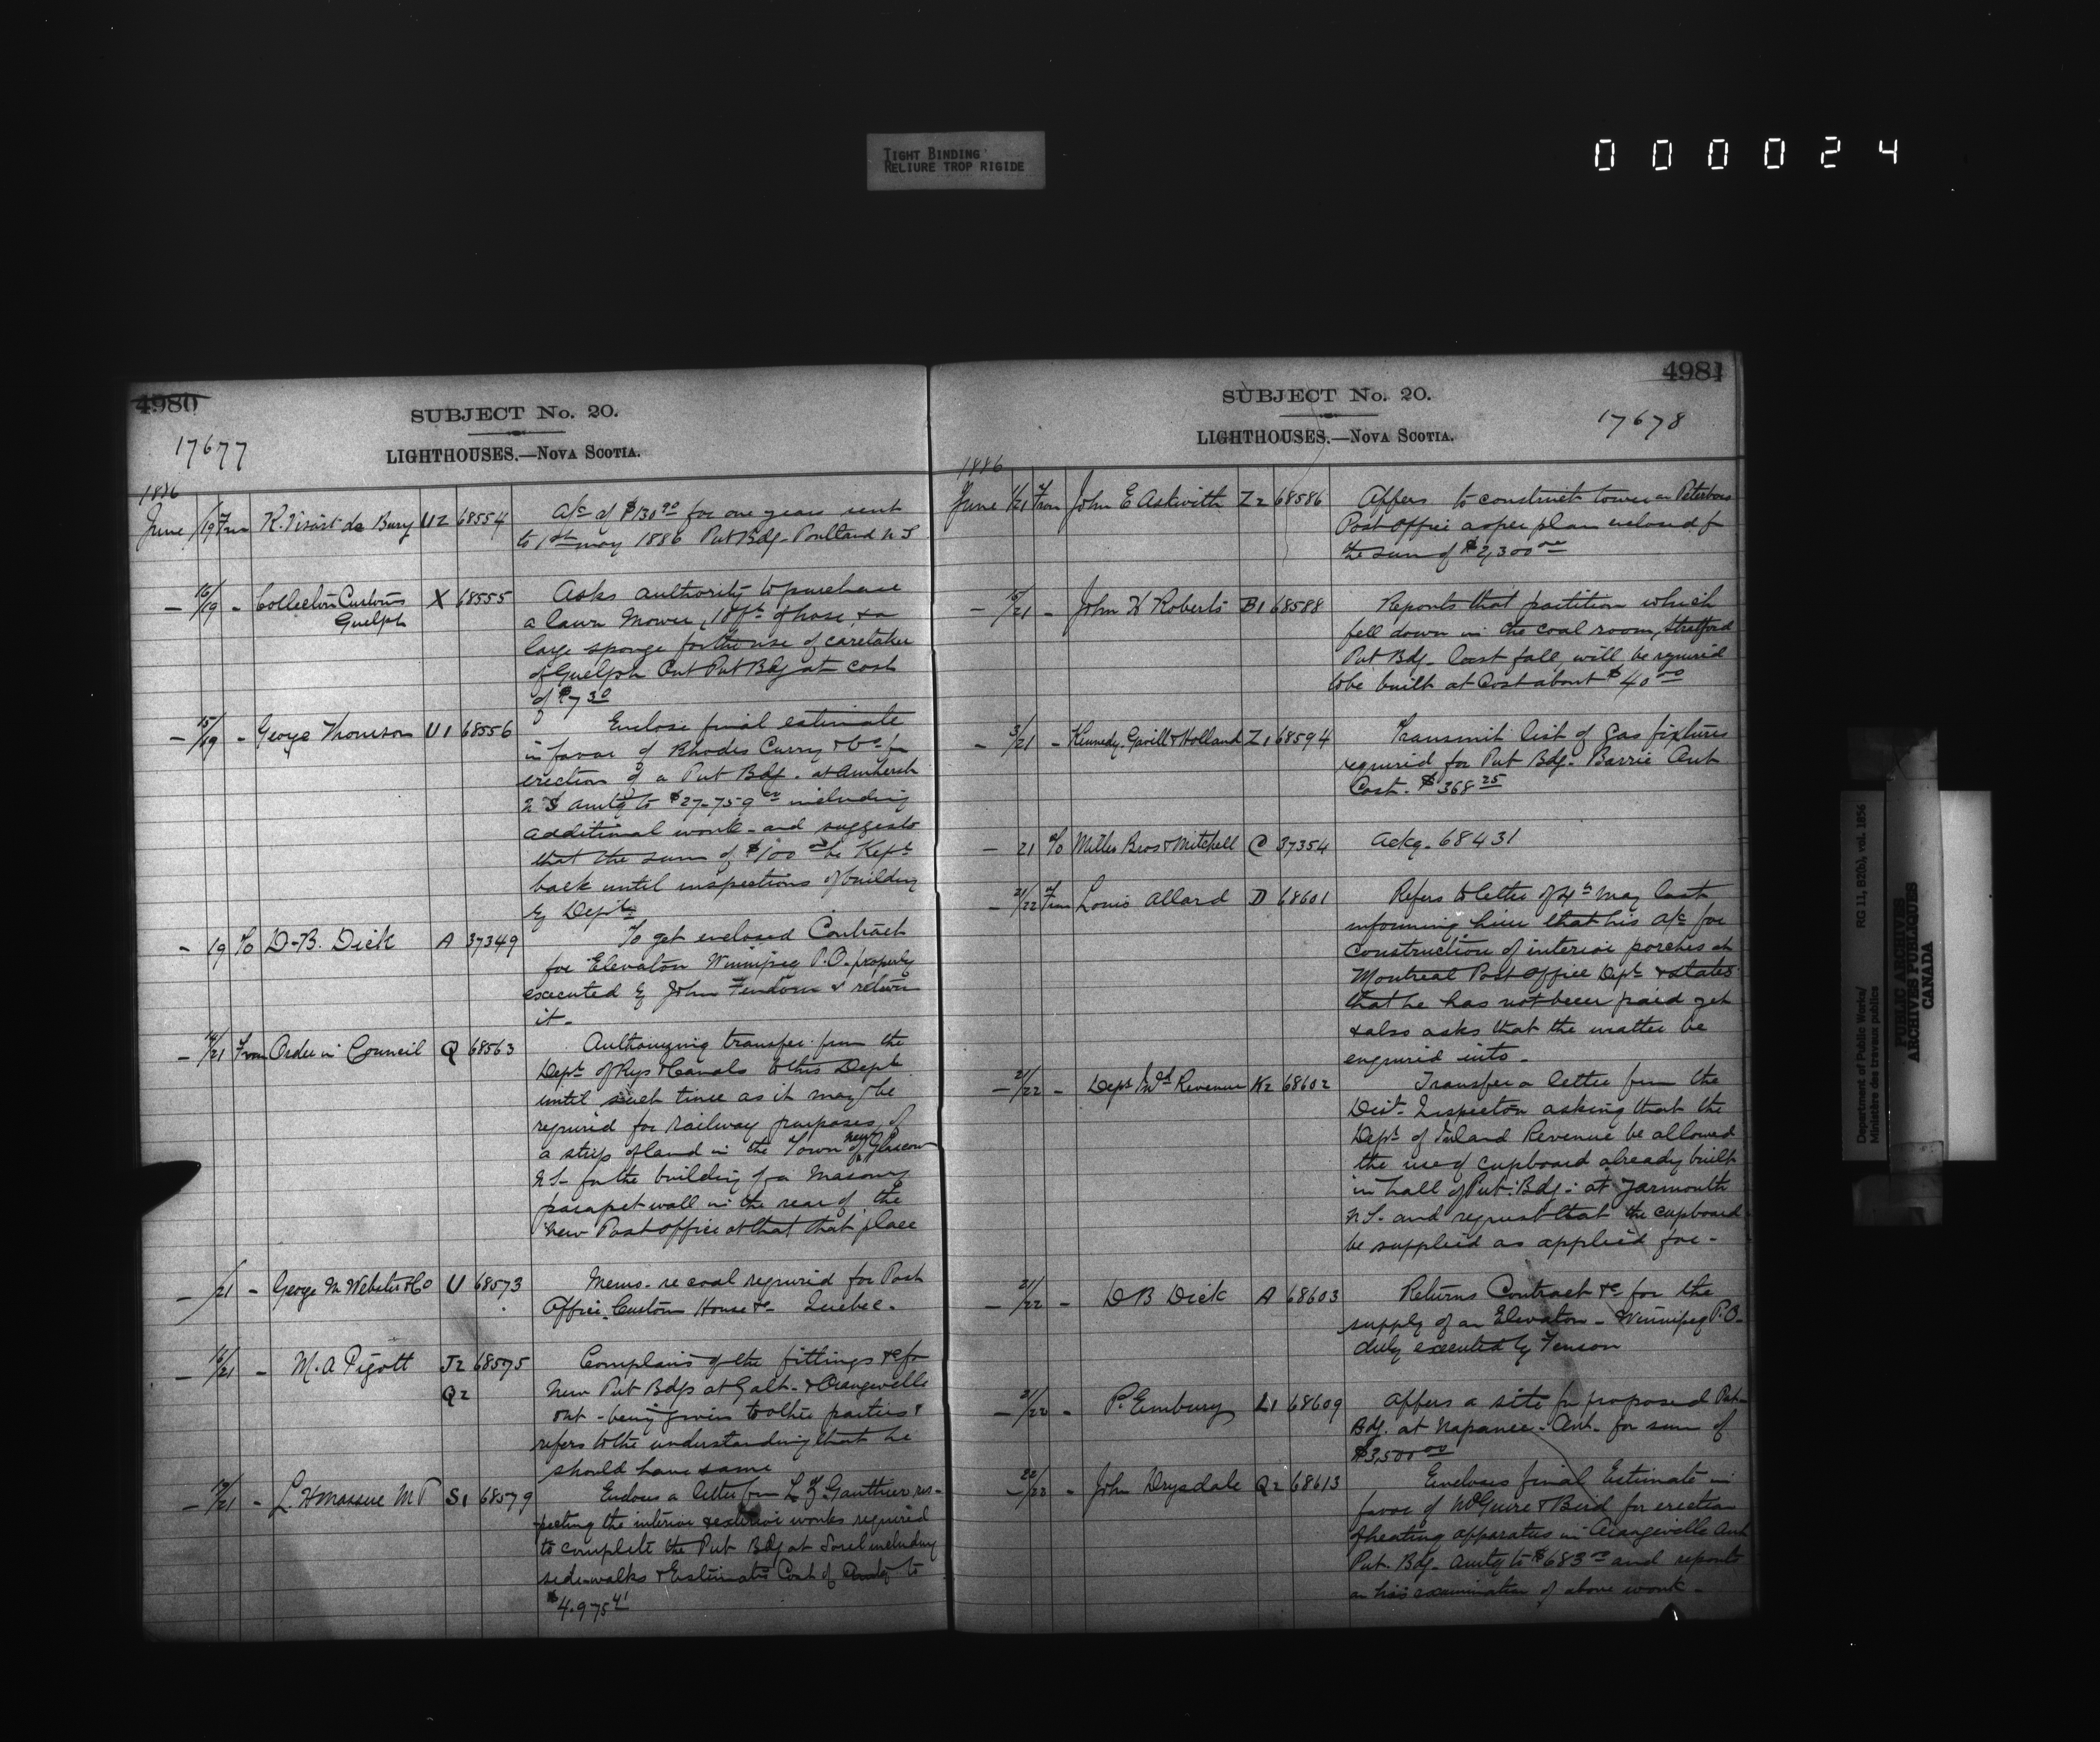 TIGHT BINDING
RELIURE TROP RIGIDE
000024
4980
SUBJECT No. 20.
17677
LIGHTHOUSES.—NOVA SCOTIA.
1886
June /19 From R. Visart de Bury U2 68554 A/c of $130.00 for one years rent
to 1st May 1886 Pub Bdg. Portland N B
— 16/19 - Collector Customs X 68555 Asks authority to purchase
Guelph a lawn Mower, ft of hose, & a
large sponge for the use of caretaker
of Guelph Ont Pub Bdg at cost
of $7 30
— 15/19 - George Thomson U1 68556 Enclose final estimate
in favor of Rhodes Curry & Co for
erection of a Pub Bdg. at Amherst
N S amtg to $27-759 00 including
additional work - and suggests
that the sum of $100 00 be Kept
back until inspections of building
by Dept
- 19 To D-B. Dick A 37349 To get enclosed Contract
for Elevator Winnipeg P.O. properly
executed by John & return
it -
— /21 From Order in Council Q 68563 Authorizing transfer from the
Dept of Rys & Canals to this Dept
until such time as it may be
required for railway purposes, of
a strip of land in the Town of New Glasgow
N S- for the building of a Masonry
parapet wall in the rear of the
New Post office at that that place
— /21 - George M Webster & Co U 68573 Memo- re coal required for Post
Office, Custom House &c - Quebec -
— 16/21 - M. A Pigott J2 68575 Complains of the fittings &c for
Q2 New Pub Bdgs at Galt - & Orangeville
Ont - being given to other parties &
refers to the understanding that he
should have same
— 19/21 - L. H Massue M P S1 68579 Encloses a letter from L. Z. Gauthier res-
pecting the interior & exterior works required
to complete the Pub Bdg at Sorel including
side-walks & Estimates Cost of Amtg to
$4.975 41
4981
SUBJECT No. 20.
17678
LIGHTHOUSES.—NOVA SCOTIA.
1886
June /21 From John E Askwith Z2 68586 Offers to construct tower on Peterboro
Post Office as per plan enclosed for
the sum of $2,300 00
— 15/21 - John H Roberts B1 68588 Reports that partition which
fell down in the coal room, Stratford
Pub Bdg- last fall, will be required
to be built at Cost about $40 00
— 3/21 - Kennedy, & Holland Z1 68594 Transmit list of Gas fixtures
required for Pub Bdg- Barrie Ont
Cost - $368 25
— 21 To Miller Bros & Mitchell C 37354 Ackg. 68431
— 21/22 From Louis Allard D 68601 Refers to letter of 4th May last
informing him that his a/c for
construction of interior porches at
Montreal Post office Dept & states
that he has not been paid yet
& also asks that the matter be
enquired into -
— 21/22 - Dept Inld Revenue K2 68602 Transfer a letter from the
Dist. Inspector asking that the
Dept of Inland Revenue be allowed
the use of cupboard already built
in hall of Pub. Bdg - at Yarmouth
N S- and request that the cupboard
be supplied as applied for -
— 21/22 - D B Dick A 68603 Returns Contract &c for the
supply of an Elevator - Winnipeg P.O-
duly executed by
— 21/22 - P. Embury L1 68609 Offers a site for proposed Pub
Bdg. at Napanee - Ont - for sum of
$3,500 00
— 22/22 - John Drysdale Q2 68613 Encloses final Estimate in
favor of McGuire & Bird for erection
of heating apparatus in Orangeville Ont
Pub. Bdg- amtg to $683 00 and reports
on his examination of above work -
Department of Public Works/
Ministère des travaux publics
RG 11, B2(b), vol. 1856
PUBLIC ARCHIVES
ARCHIVES PUBLIQUES
CANADA